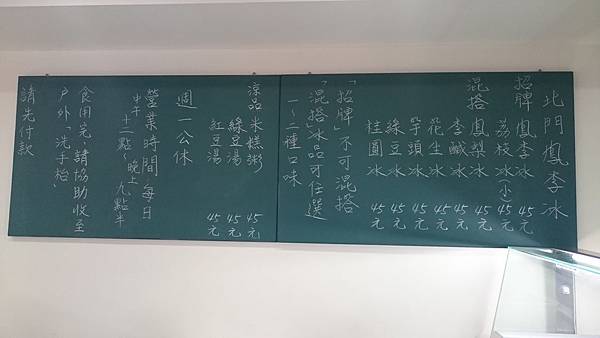 北門鳳李冰
招牌 鳳李冰 45元
荔枝冰(小) 45元
混搭 鳳梨冰 45元
李鹹冰 45元
花生冰 45元
芋頭冰 45元
綠豆冰 45元
桂圓冰 45元
「招牌」不可混搭
「混搭」冰品可任選
一~二種口味
涼品 米糕粥 45元
綠豆湯 45元
紅豆湯 45元
週一公休
營業時間 每日
中午十二點~晚上九點半
食用完 請協助收至
戶外「洗手枱」
請先付款